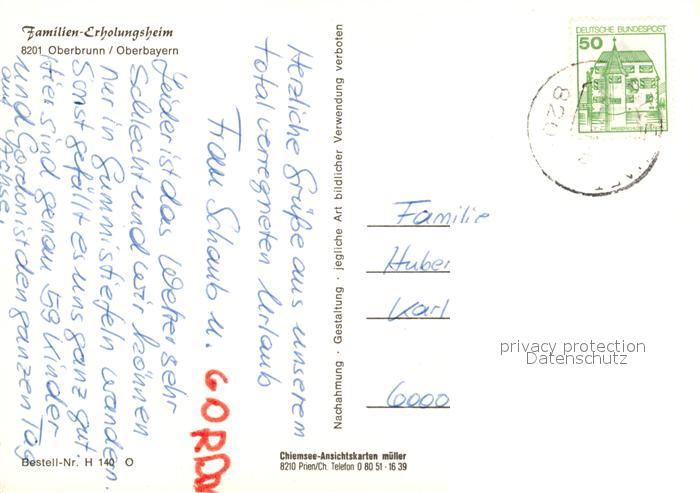 Familien-Erholungsheim
8201 Oberbrunn / Oberbayern
Herzliche Grüße aus unserem
total verregneten Urlaub
Frau Schaub u. GORDON
Leider ist das Wetter sehr
schlecht und wir können
nur in Gummistiefeln wandern.
Sonst gefällt es uns ganz gut.
Hier sind genau 59 Kinder
und Gordon ist den ganzen Tag
auf Achse.
Bestell-Nr. H 140 O
Nachahmung · Gestaltung · jegliche Art bildlicher Verwendung verboten
Chiemsee-Ansichtskarten müller
8210 Prien/Ch. Telefon 0 80 51 · 16 39
DEUTSCHE BUNDESPOST
50
820
Familie
Huber
Karl
6000
privacy protection
Datenschutz